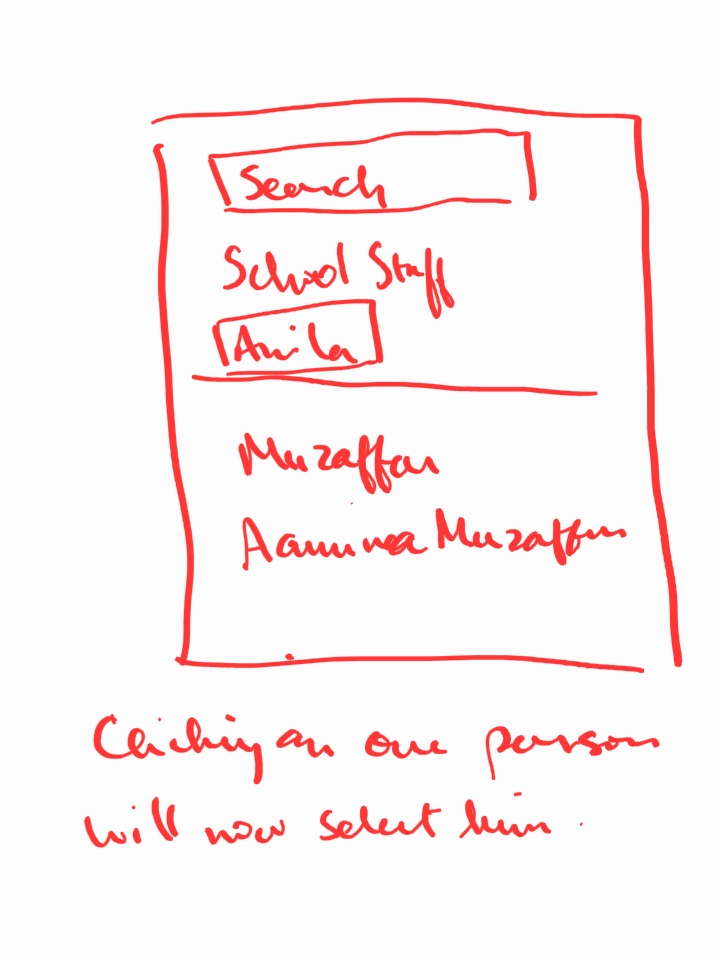 Search
School Staff
Anila
Muzaffar
Aamina Muzaffar
Clicking on one person
will now select him.